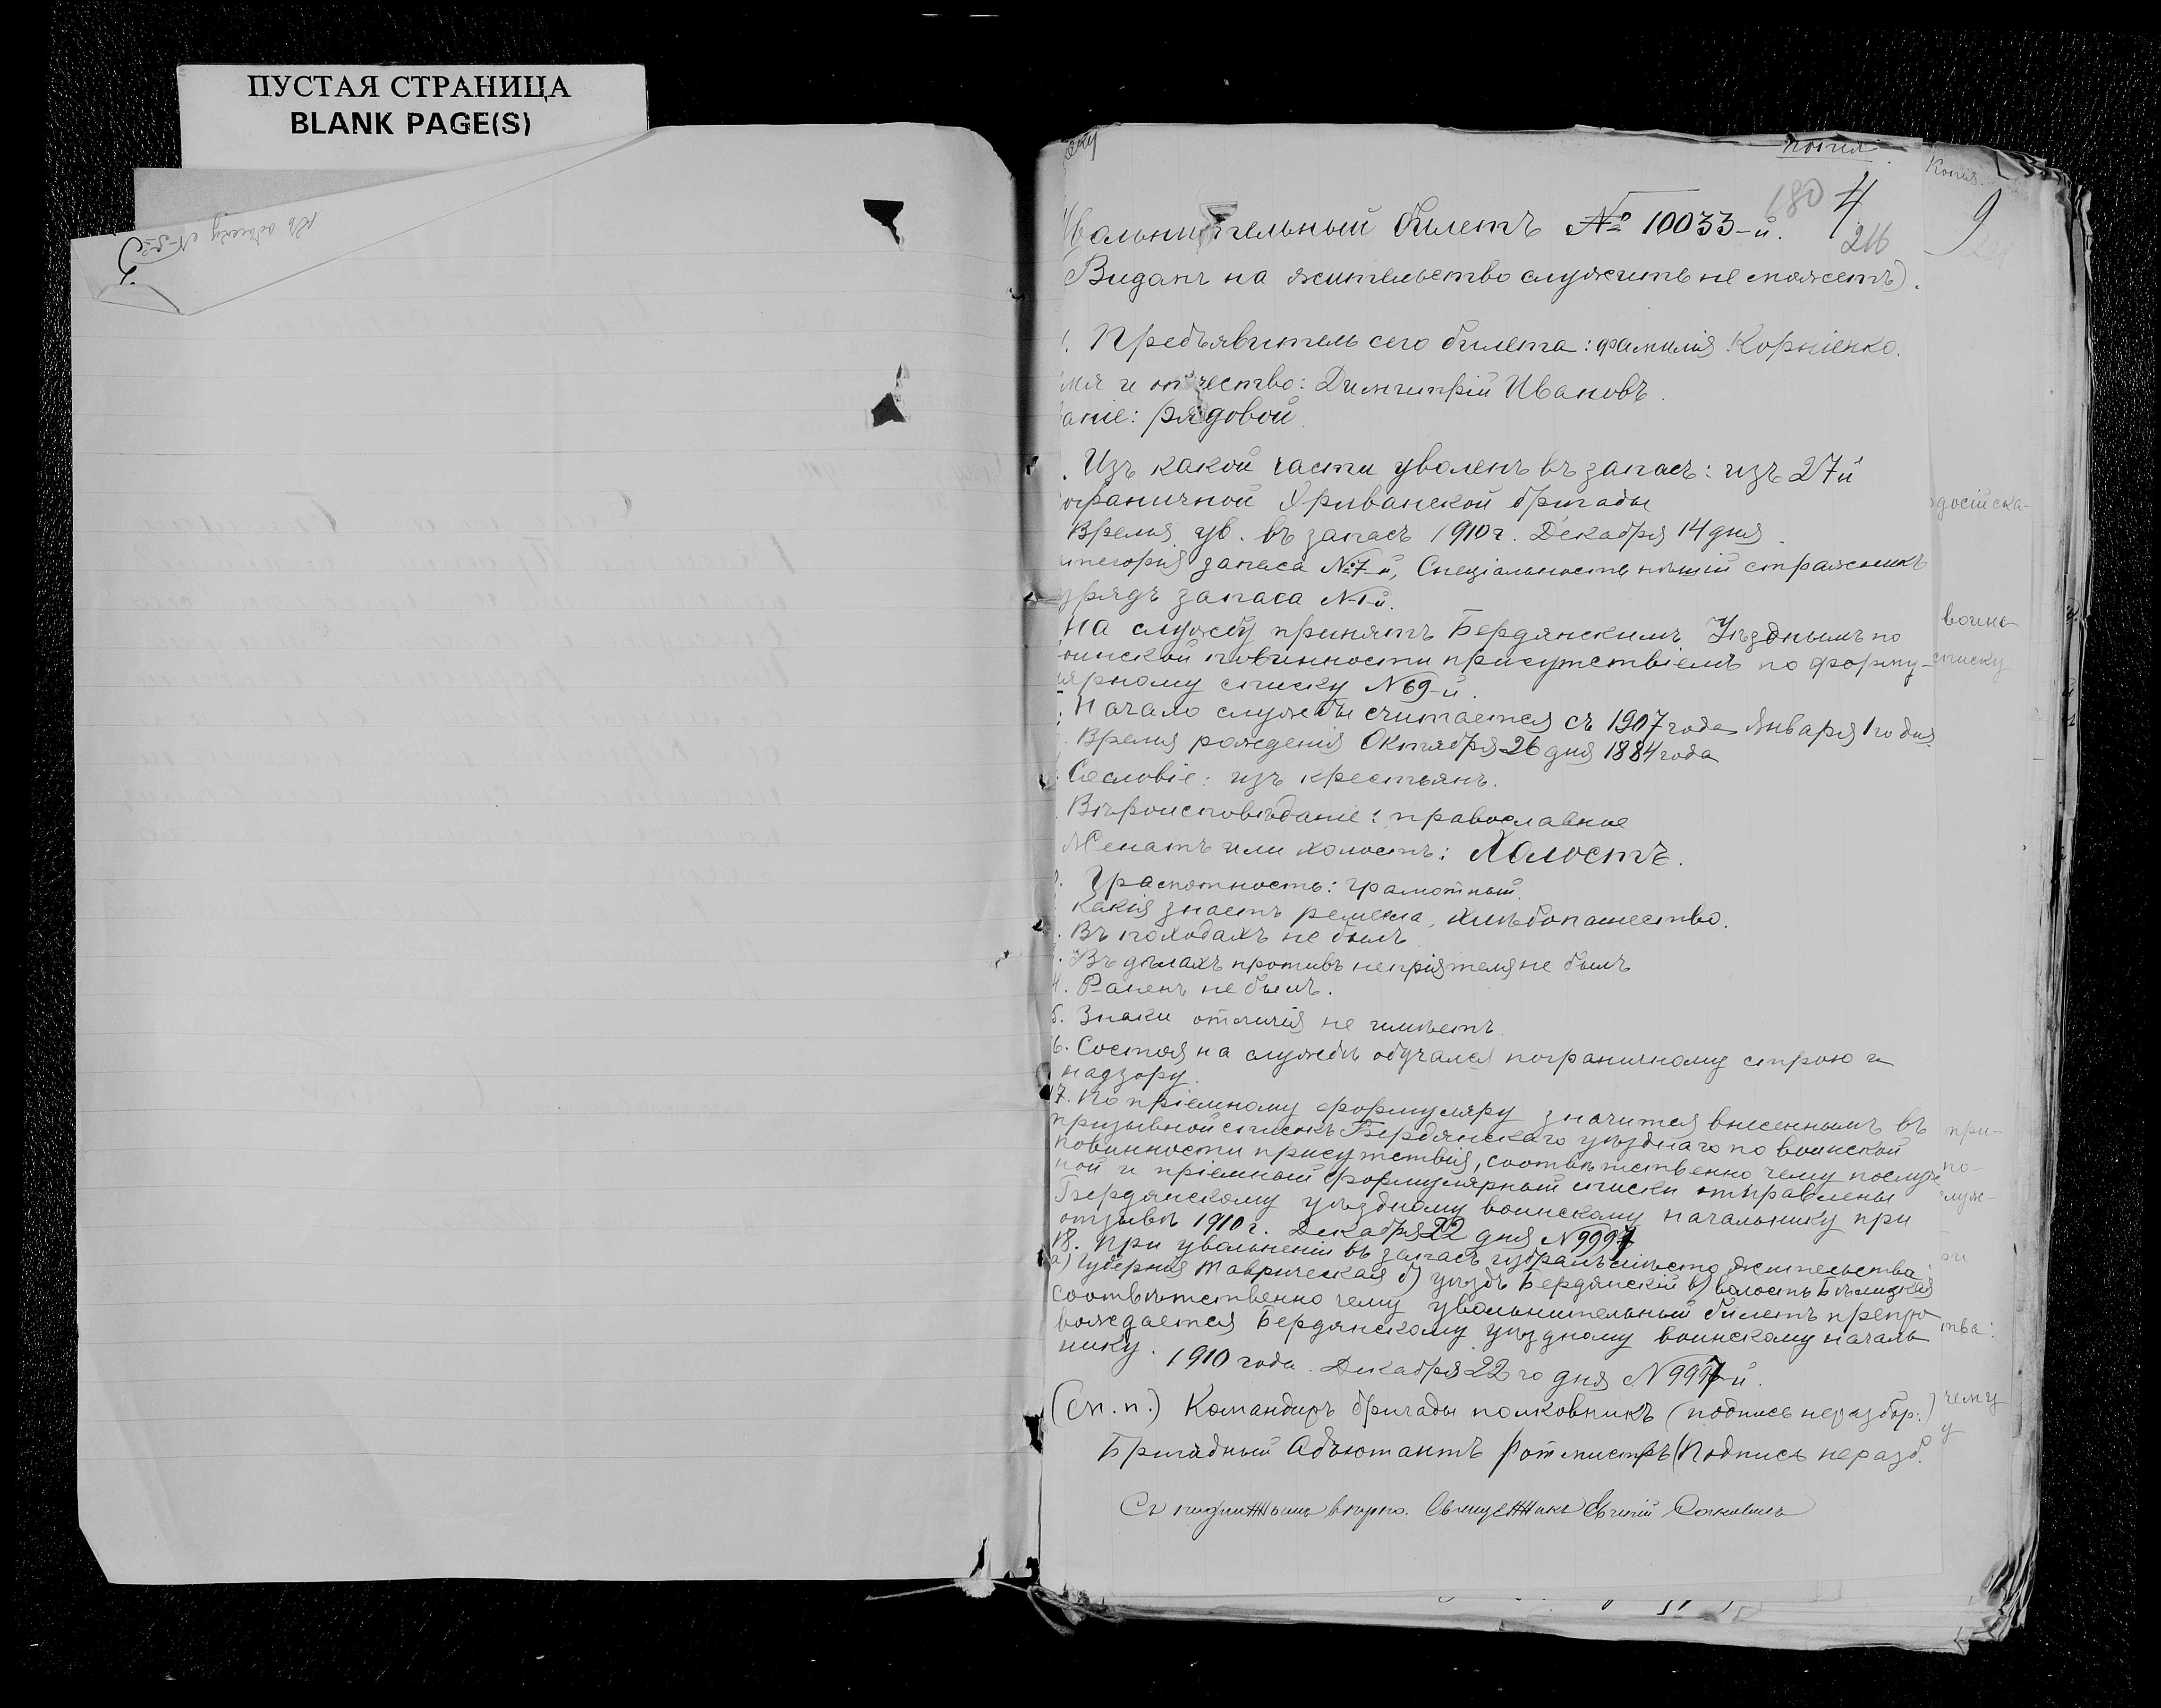 ПУСТАЯ СТРАНИЦА
BLANK PAGE(S)
Копія.
180 4
216
9
Увольнительный билетъ № 10033-й.
(Виданъ на жительство служить не можетъ).
1. Предъявитель сего билета: фамилія Корніенко.
имя и отчество: Димитрій Ивановъ.
аніе: рядовой
. Изъ какой части уволенъ въ запасъ: изъ 27й
ограничной Эриванской бригады
Время ув. въ запасъ 1910 г. Декабря 14 дня.
атегорія запаса №7-й, Спеціальность пѣшій стражникъ
зрядъ запаса №1-й.
На службу принятъ Бердянскимъ Уѣзднымъ по
оинской повинности присутствіемъ по форму-
лярному списку №69-й.
. Начало службы считается съ 1907 года Января 1го дня.
. Время рожденія Октября 26 дня 1884 года
. Сословіе: изъ крестьянъ.
. Вѣроисповѣданіе: православное
Женатъ или холостъ: Холостъ.
. Грамотность: грамотный.
Какія знаетъ ремесла, хлѣбопашество.
. Въ походахъ не былъ
. Въ дѣлахъ противъ непріятеля не былъ
4. Раненъ не былъ.
5. Знаки отличія не имѣетъ.
6. Состоя на службѣ обучался пограничному строю и
надзору.
17. По пріемному формуляру значится внесеннымъ въ
призывной списокъ Бердянскаго уѣзднаго по воинской
повинности присутствія, соотвѣтственно чему послуж
ной и пріемный формулярный списки отправлены
Бердянскому уѣздному воинскому начальнику при
отзывѣ 1910 г. Декабря 22 дня №9997
18. При увольненіи въ запасъ избралъ мѣсто жительства:
а) Губернія Таврическая б) уѣздъ Бердянскій в) волость
соотвѣтственно чему увольнительный билетъ препро
вождается Бердянскому уѣздному воинскому началь
нику. 1910 года. Декабря 22го дня №9997-й.
(См. п.) Командиръ бригады полковникъ (подпись неразбор.)
Бригадный Адъютантъ Ротмистръ (Подпись неразб.
Съ подлиннымъ вѣрно. Священникъ